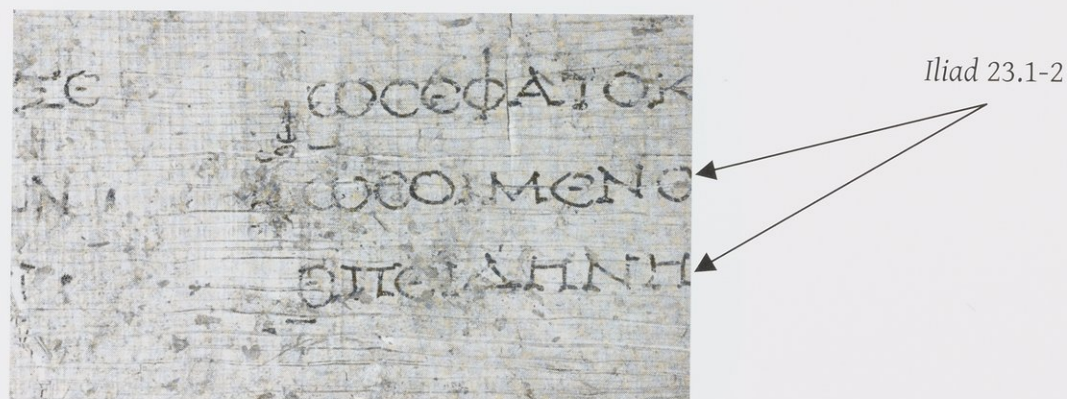 ΞΕ ωϹΕΦΑΤΟΚ
Ν ωϹΟΙΜΕΝϹ
Τ ΕΠΕΙΔΗΝΗ
Iliad 23.1-2